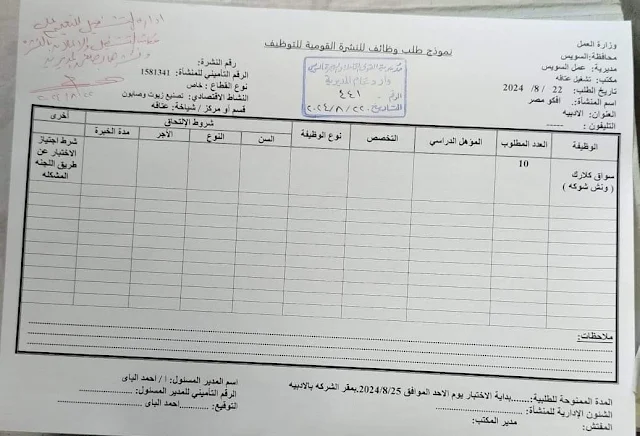 وزارة العمل
محافظة:السويس
مديرية: عمل السويس
مكتب: تشغيل عتاقه
تاريخ الطلب: 22 /8/ 2024
اسم المنشأة: افكو مصر
العنوان: الادبيه
التليفون: -----
نموذج طلب وظائف للنشرة القومية للتوظيف
رقم النشرة:
الرقم التأميني للمنشأة: 1581341
نوع القطاع: خاص
النشاط الاقتصادي: تصنيع زيوت وصابون
قسم أو مركز / شياخة: عتاقه
٤٤١
التاريخ ٢٠٢٤/٨/٢٢
الوظيفة
العدد المطلوب
المؤهل الدراسي
التخصص
نوع الوظيفة
شروط الإلتحاق
السن
النوع
الأجر
مدة الخبرة
أخرى
سواق كلارك
( ونش شوكه )
10
شرط اجتياز
الاختبار عن
طريق اللجنه
المشكله
ملاحظات:
المدة الممنوحة للطلبية:......بداية الاختبار يوم الاحد الموافق 2024/8/25.بمقر الشركه بالادبيه
الشئون الإدارية للمنشأة:
المفتش:
مدير المكتب:
اسم المدير المسئول: ا / أحمد الباى
الرقم التأميني للمدير المسئول:
التوقيع: احمد الباى